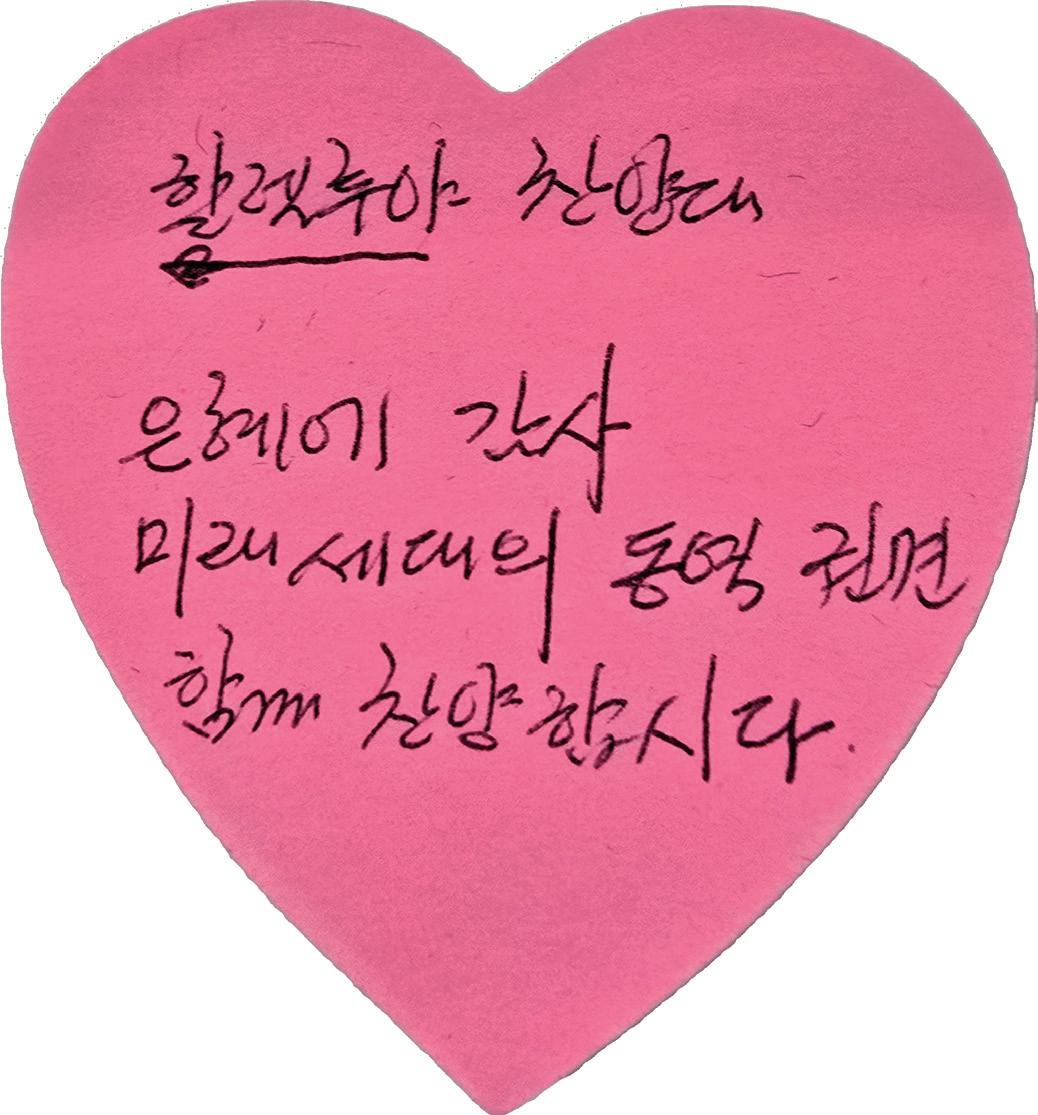 할렐루야 찬양대
은혜에 감사
미래세대의 동역 권면
함께 찬양합시다.